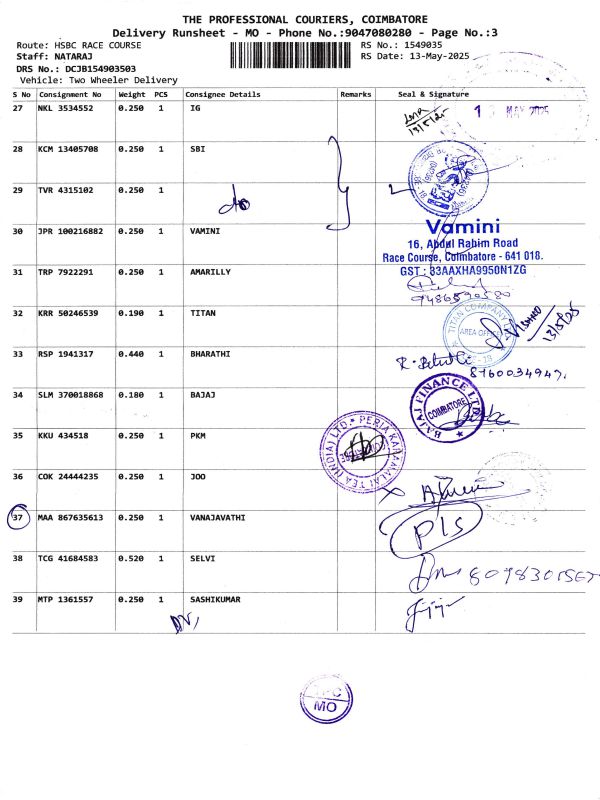 THE PROFESSIONAL COURIERS, COIMBATORE
Delivery Runsheet - MO - Phone No.:9047080280 - Page No.:3
Route: HSBC RACE COURSE RS No.: 1549035
Staff: NATARAJ RS Date: 13-May-2025
DRS No.: DCJB154903503
Vehicle: Two Wheeler Delivery
S No Consignment No Weight PCS Consignee Details Remarks Seal & Signature
27 NKL 3534552 0.250 1 IG
13/5/25 MAY 2025
28 KCM 13405708 0.250 1 SBI
29 TVR 4315102 0.250 1
30 JPR 100216882 0.250 1 VAMINI
Vamini
16, Abdul Rahim Road
Race Course, Coimbatore - 641 018.
GST : 33AAXHA9950N1ZG
31 TRP 7922291 0.250 1 AMARILLY
32 KRR 50246539 0.190 1 TITAN
TITAN COMPANY
AREA OFFICE
13/5/25
33 RSP 1941317 0.440 1 BHARATHI
8760034947
34 SLM 370018868 0.180 1 BAJAJ
BAJAJ FINANCE LTD
COIMBATORE
35 KKU 434518 0.250 1 PKM
PERIA KARAMALAI TEA (INDIA) LTD.
36 COK 24444235 1 0.250 JOO
37 MAA 867635613 0.250 1 VANAJAVATHI
Pls
38 TCG 41684583 0.520 1 SELVI
39 MTP 1361557 0.250 1 SASHIKUMAR
MO